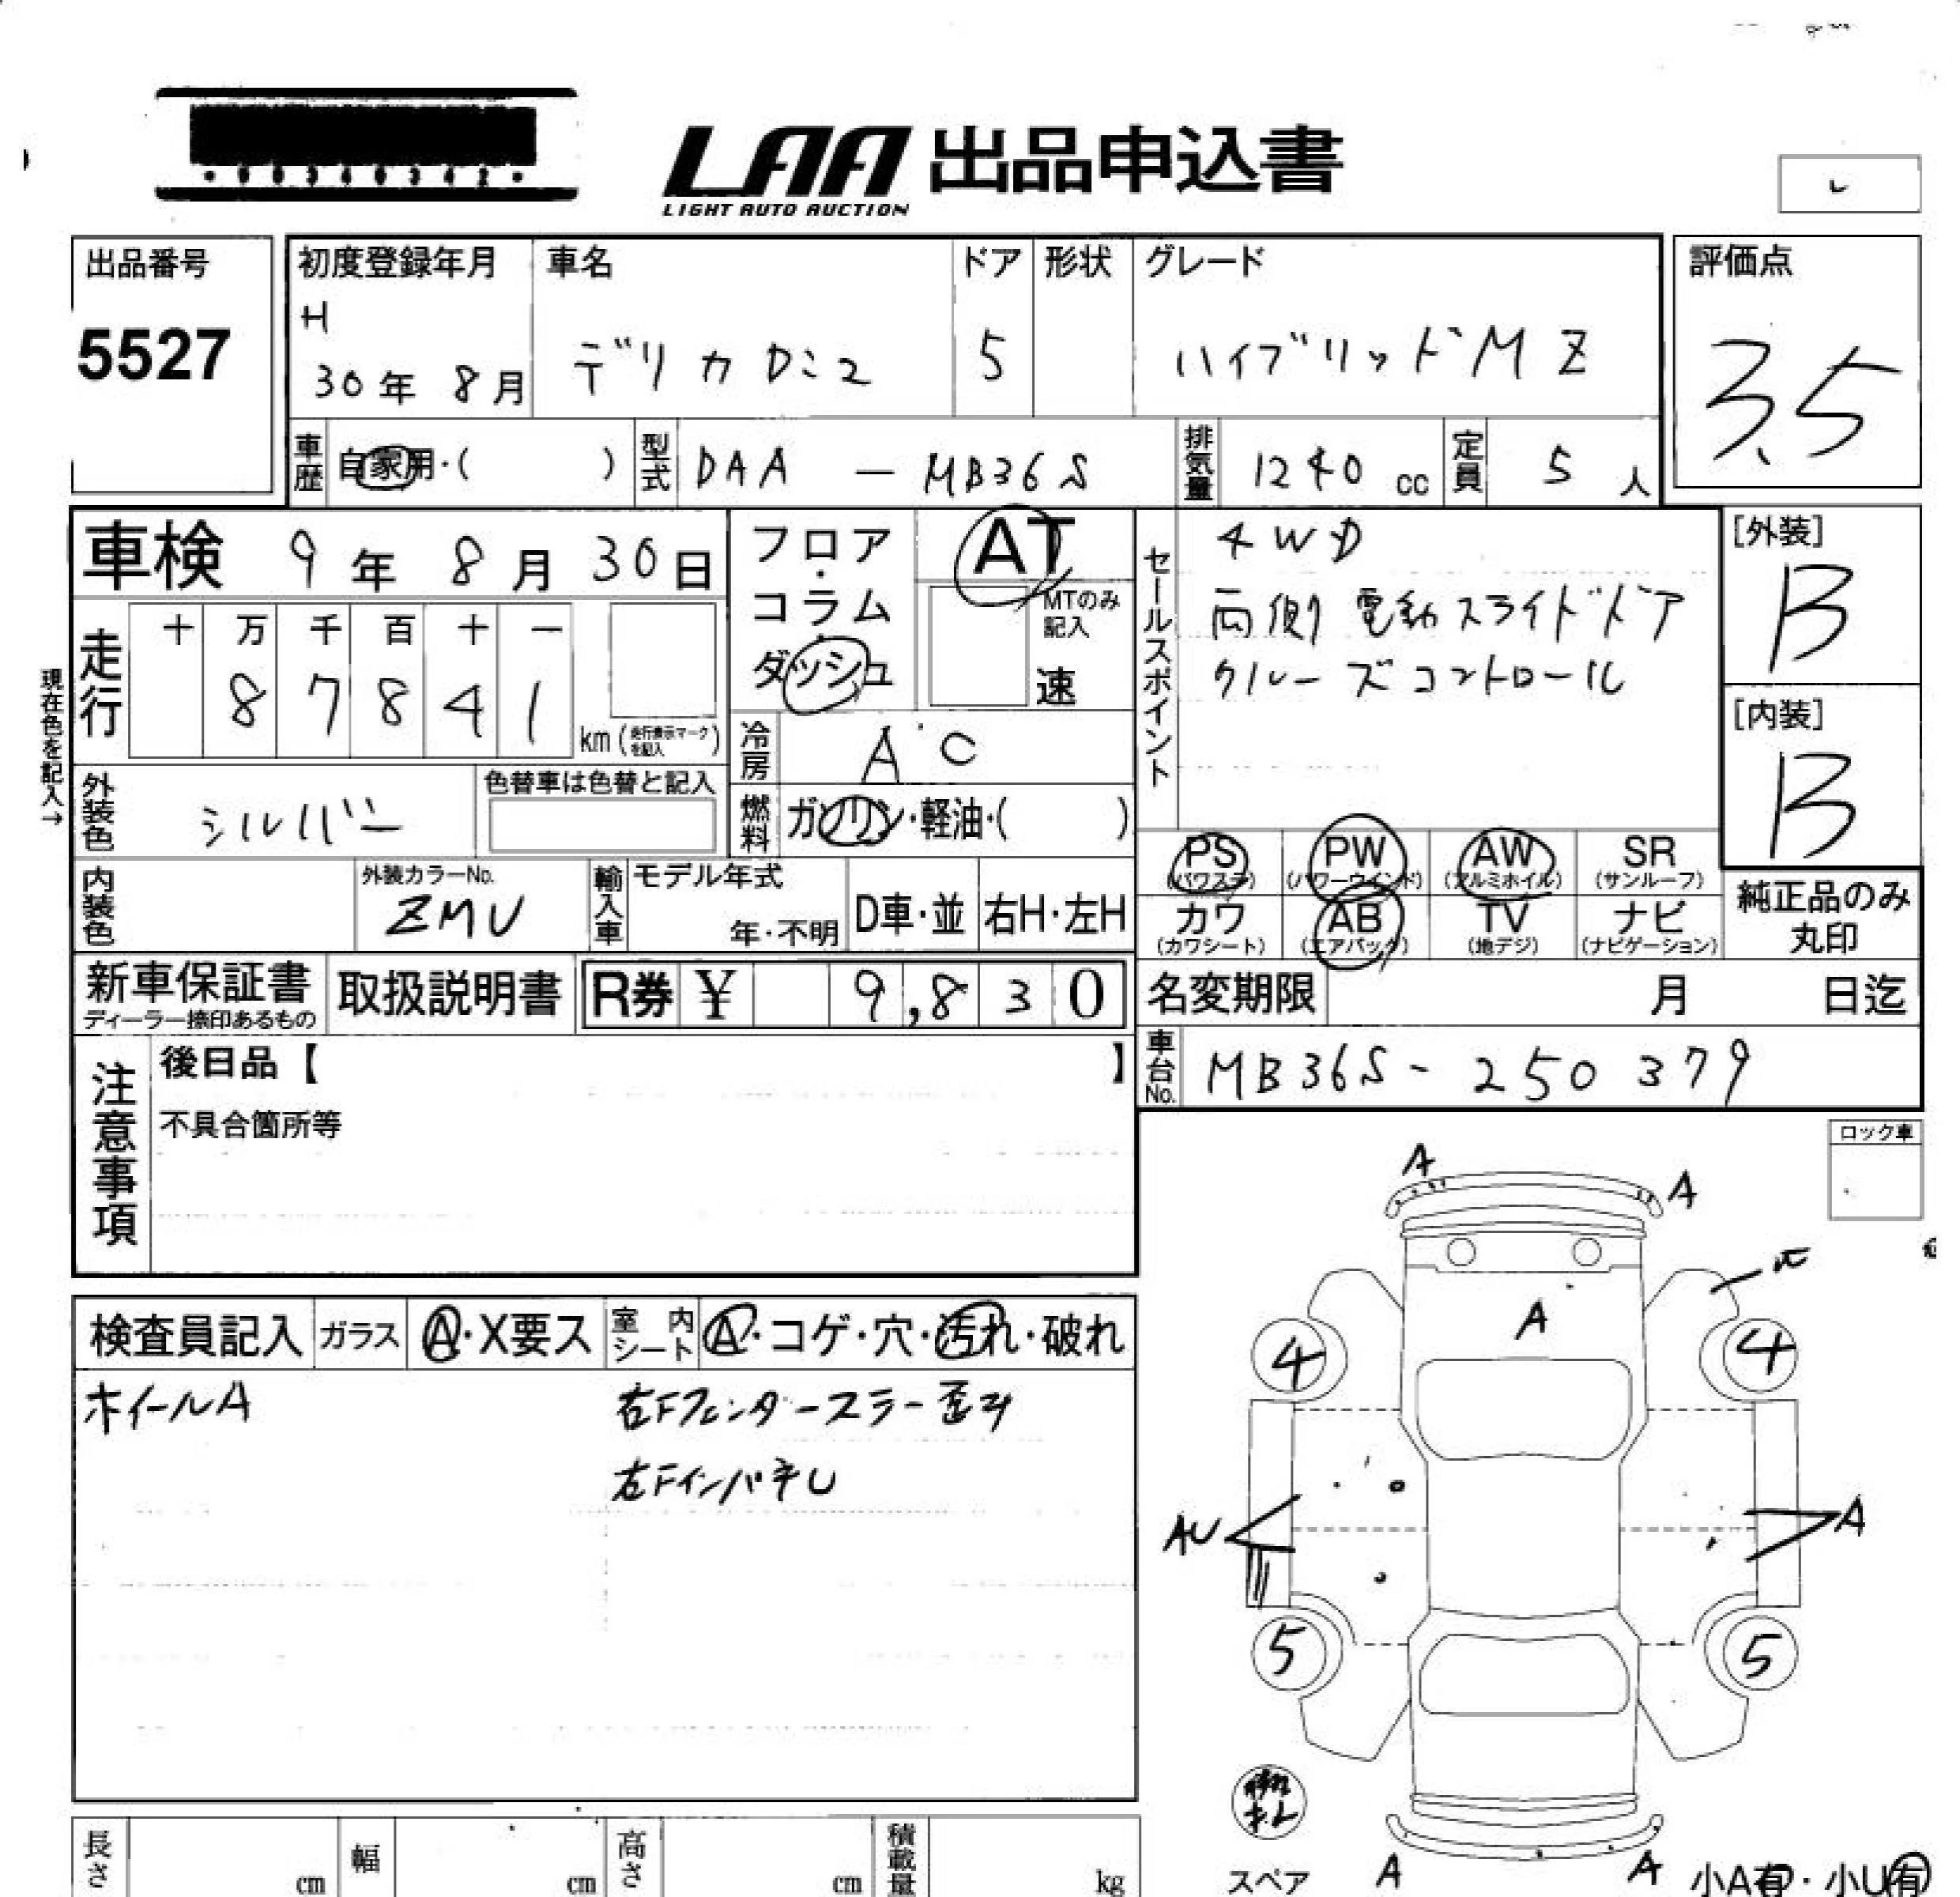 ・00340342・
LAA 出品申込書
LIGHT AUTO AUCTION
出品番号 初度登録年月 車名 ドア 形状 グレード 評価点
5527 H 30年 8月 デリカD:2 5 ハイブリッドMZ 3.5
車歴 自家用・( ) 型式 DAA-MB36S 排気量 1240 cc 定員 5 人
車検 9年 8月 30日 フロア・コラム・ダッシュ AT セールスポイント 4WD [外装] B
MTのみ記入 速 両側電動スライドドア
現在色を記入→ 走行 十 万 千 百 十 一 クルーズコントロール
8 7 8 4 1 km (走行表示マークを記入) [内装] B
冷房 AC
外装色 シルバー 色替車は色替と記入 燃料 ガソリン・軽油・( )
PS (パワステ) PW (パワーウインド) AW (アルミホイル) SR (サンルーフ)
内装色 外装カラーNo. ZMU 輸入車 モデル年式 年・不明 D車・並 右H・左H
カワ (カワシート) AB (エアバック) TV (地デジ) ナビ (ナビゲーション) 純正品のみ丸印
新車保証書 ディーラー捺印あるもの 取扱説明書 R券 ¥ 9,830 名変期限 月 日迄
車台No. MB36S-250379
注意事項 後日品【 】
不具合箇所等
ロック車
検査員記入 ガラス A・X要ス 室内シート A・コゲ・穴・汚れ・破れ
ホイールA 右Fフェンダーステー歪み
右FインパネU
A A
A
4 4
AU A
5 5
スペア A A 小A有・小U有
長さ cm 幅 cm 高さ cm 積載量 kg